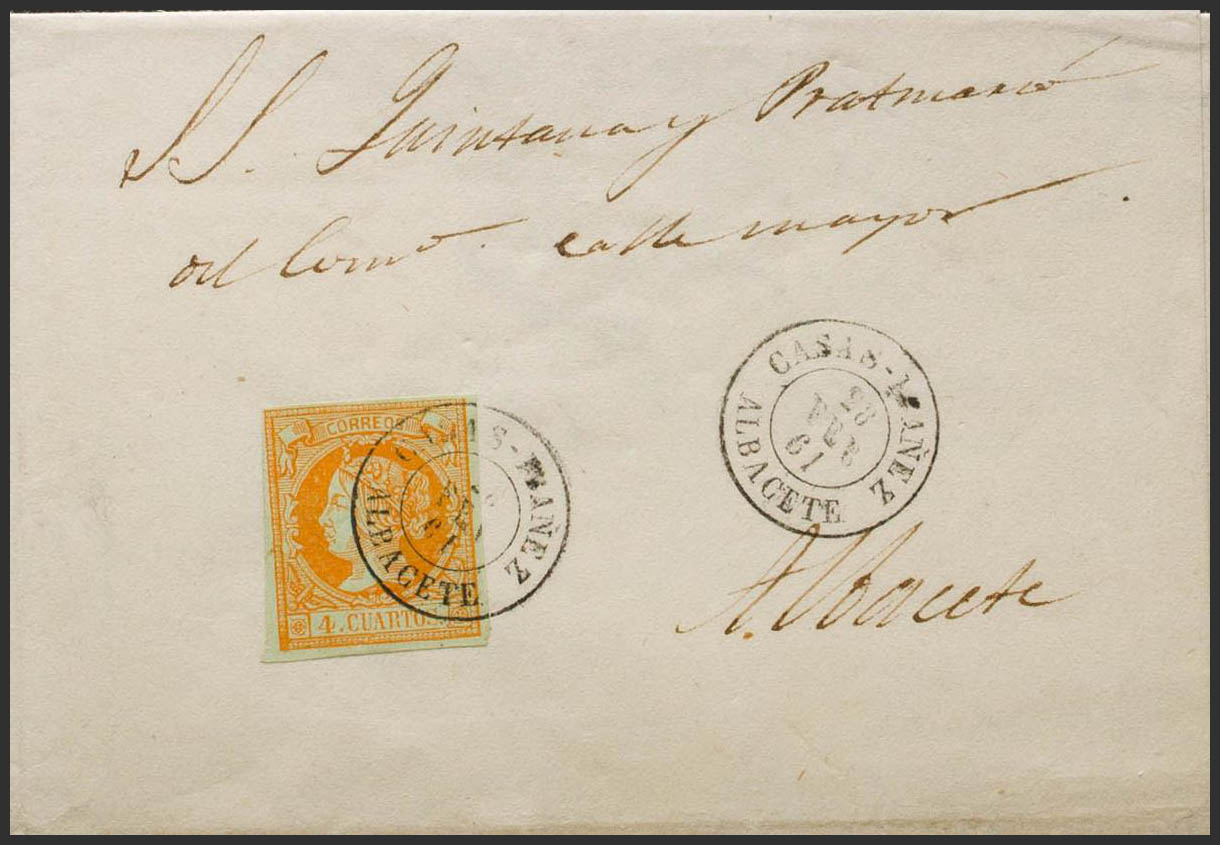 S.S. Quintana y Pratmarsó
del Comº. calle mayor.
CASAS-IBAÑEZ
28
FEB
61
ALBACETE
CORREOS
4. CUARTOS.
CASAS-IBAÑEZ
FEB
61
ALBACETE
Albacete